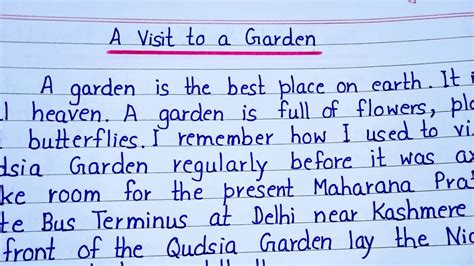 A Visit to a Garden
A garden is the best place on earth. It
heaven. A garden is full of flowers,
butterflies. I remember how I used to
Garden regularly before it was
room for the present Maharana
Bus Terminus at Delhi near Kashmere
front of the Qudsia Garden lay the